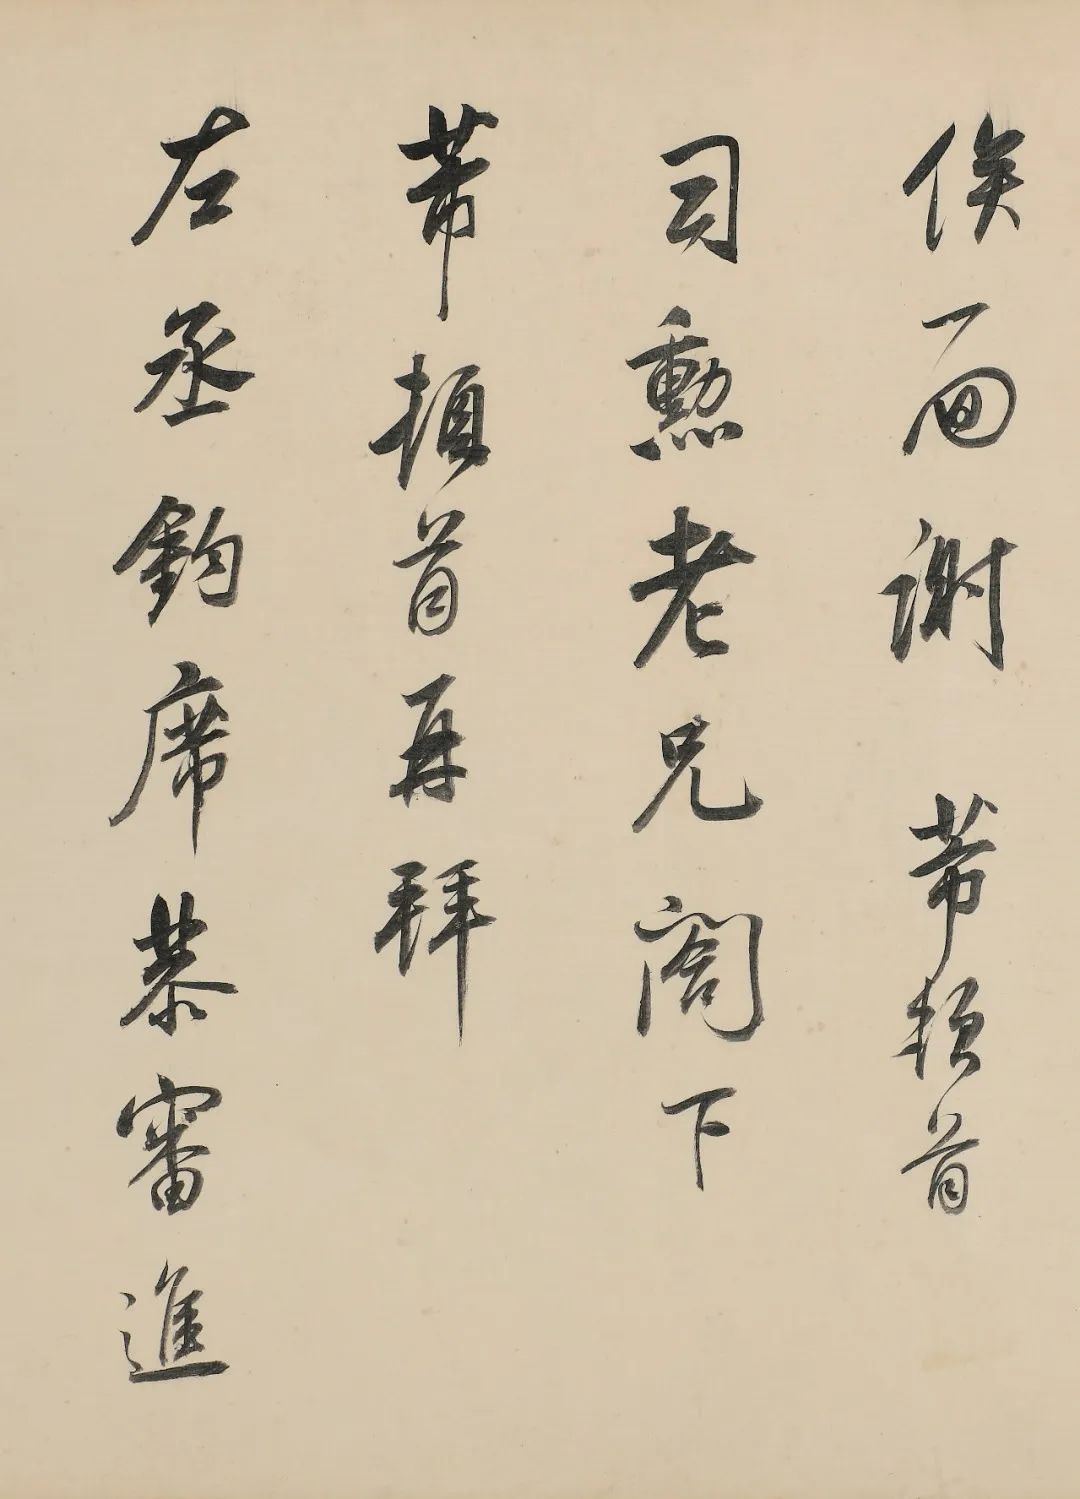 俟面謝 芾頓首
司勲老兄閤下
芾頓首再拜
左丞鈞席恭審進